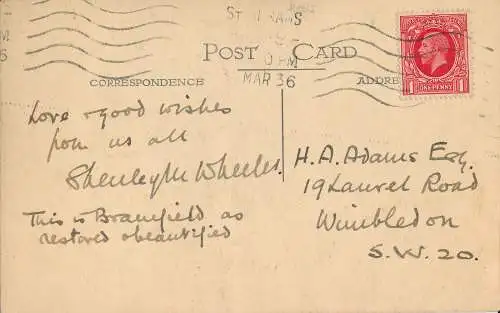 ST ALBANS
PM
MAR 36
POST CARD
CORRESPONDENCE
ADDRESS
ONE PENNY
1 1
Love & good wishes
from us all
Wheeler.
This is Bramfield as
restored & beautified
H. A. Adams Esq.
19 Laurel Road
Wimbledon
S.W. 20.